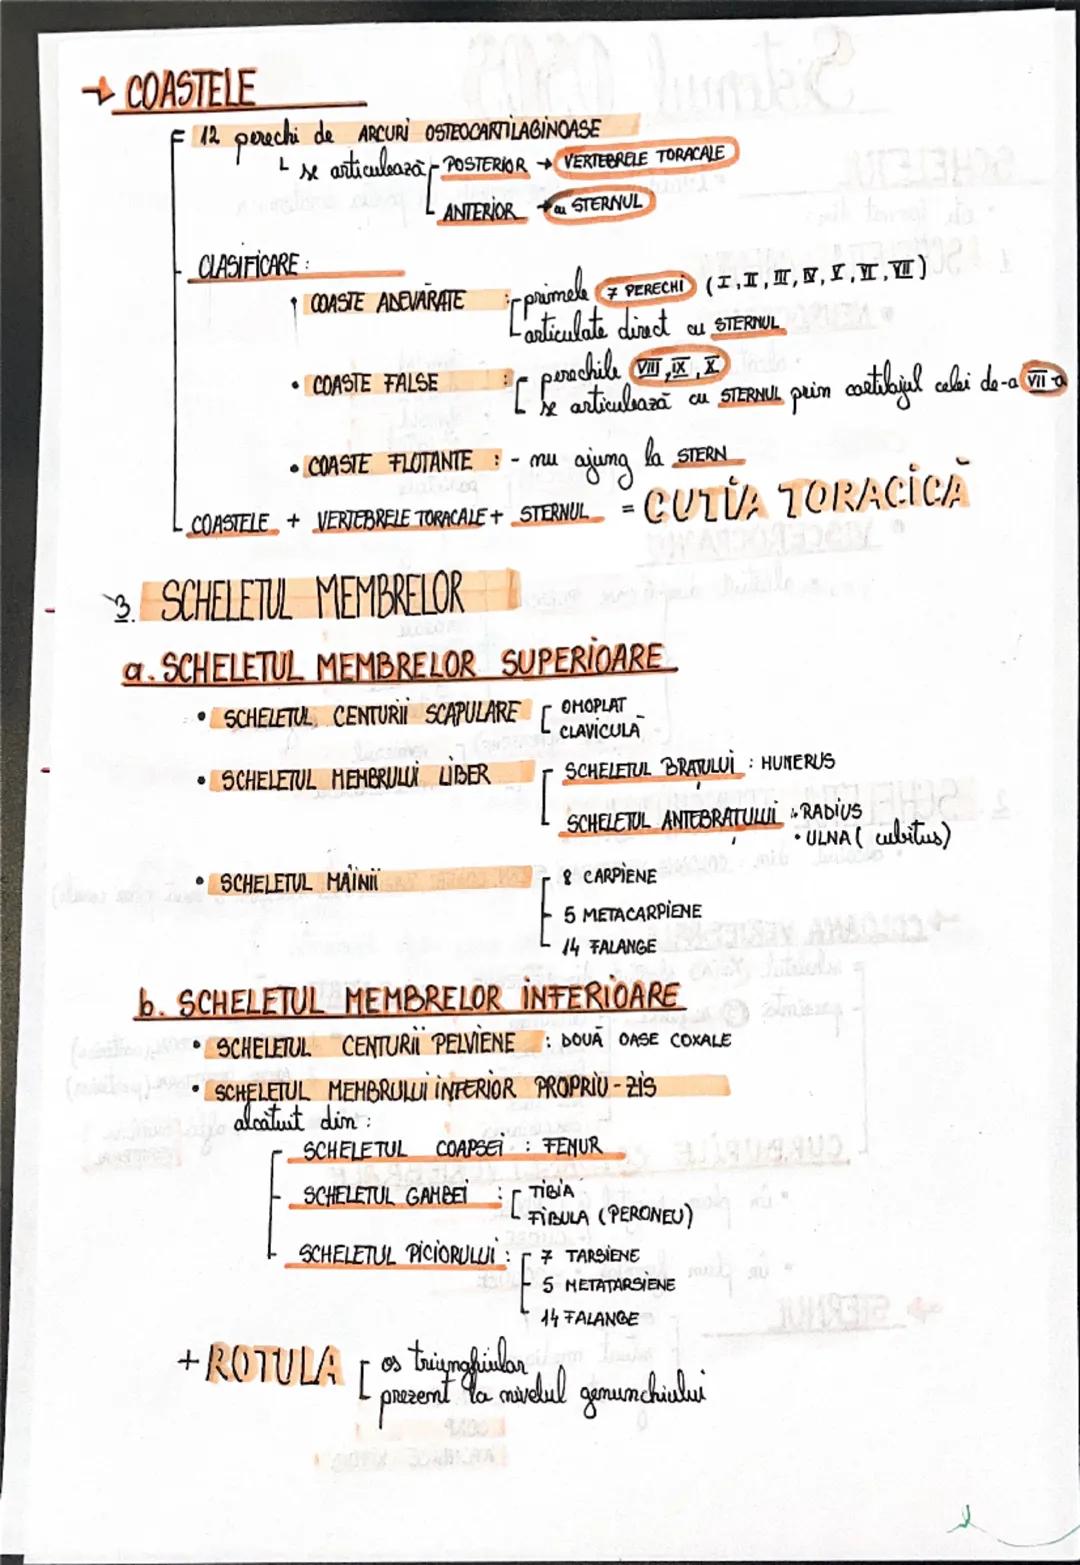 → COASTELE
12 perechi de ARCURI OSTEOCARTILAGINOASE
se articulează - POSTERIOR → VERTEBRELE TORACALE
ANTERIOR → cu STERNUL
CLASIFICARE:
COASTE ADEVĂRATE : - primele 7 PERECHI (I, II, III, IV, V, VI, VII)
articulate direct cu STERNUL
• COASTE FALSE : perechile VIII, IX, X
se articulează cu STERNUL prim cartilajul celei de-a VII-a
• COASTE FLOTANTE : - nu ajung la STERN
COASTELE + VERTEBRELE TORACALE + STERNUL = CUTIA TORACICĂ
3. SCHELETUL MEMBRELOR
a. SCHELETUL MEMBRELOR SUPERIOARE
• SCHELETUL CENTURII SCAPULARE OMOPLAT
CLAVICULĂ
• SCHELETUL MEMBRULUI LIBER SCHELETUL BRAȚULUI : HUMERUS
SCHELETUL ANTEBRAȚULUI : • RADIUS
• ULNA ( cubitus)
• SCHELETUL MÂINII 8 CARPIENE
5 METACARPIENE
14 FALANGE
b. SCHELETUL MEMBRELOR INFERIOARE
• SCHELETUL CENTURII PELVIENE : DOUĂ OASE COXALE
• SCHELETUL MEMBRULUI INFERIOR PROPRIU-ZIS
alcătuit din:
SCHELETUL COAPSEI : FEMUR
SCHELETUL GAMBEI : TIBIA
FIBULA (PERONEU)
SCHELETUL PICIORULUI : 7 TARSIENE
5 METATARSIENE
14 FALANGE
+ ROTULA os triunghiular
prezent la nivelul genunchiului